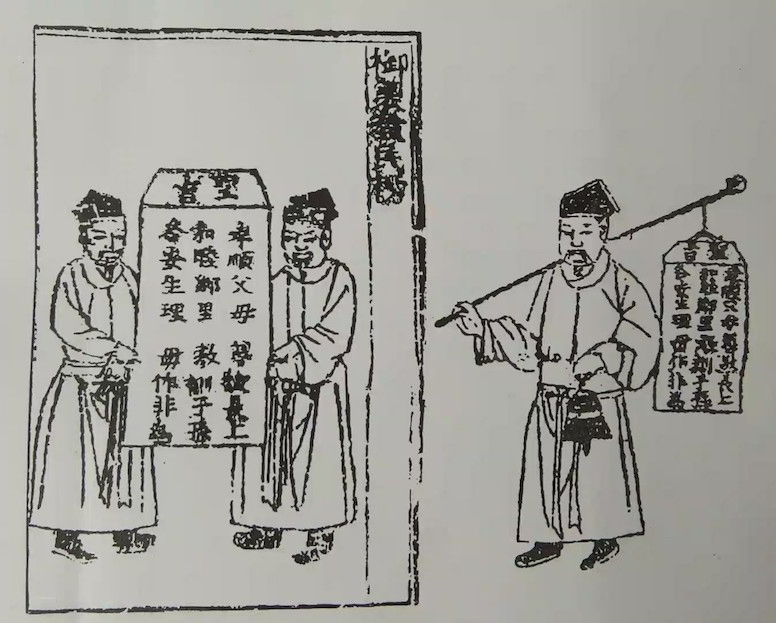 御製教民榜
聖旨
孝順父母 尊敬長上
和睦鄉里 教訓子孫
各安生理 毋作非為
聖旨
孝順父母尊敬長上
和睦鄉里教訓子孫
各安生理毋作非為